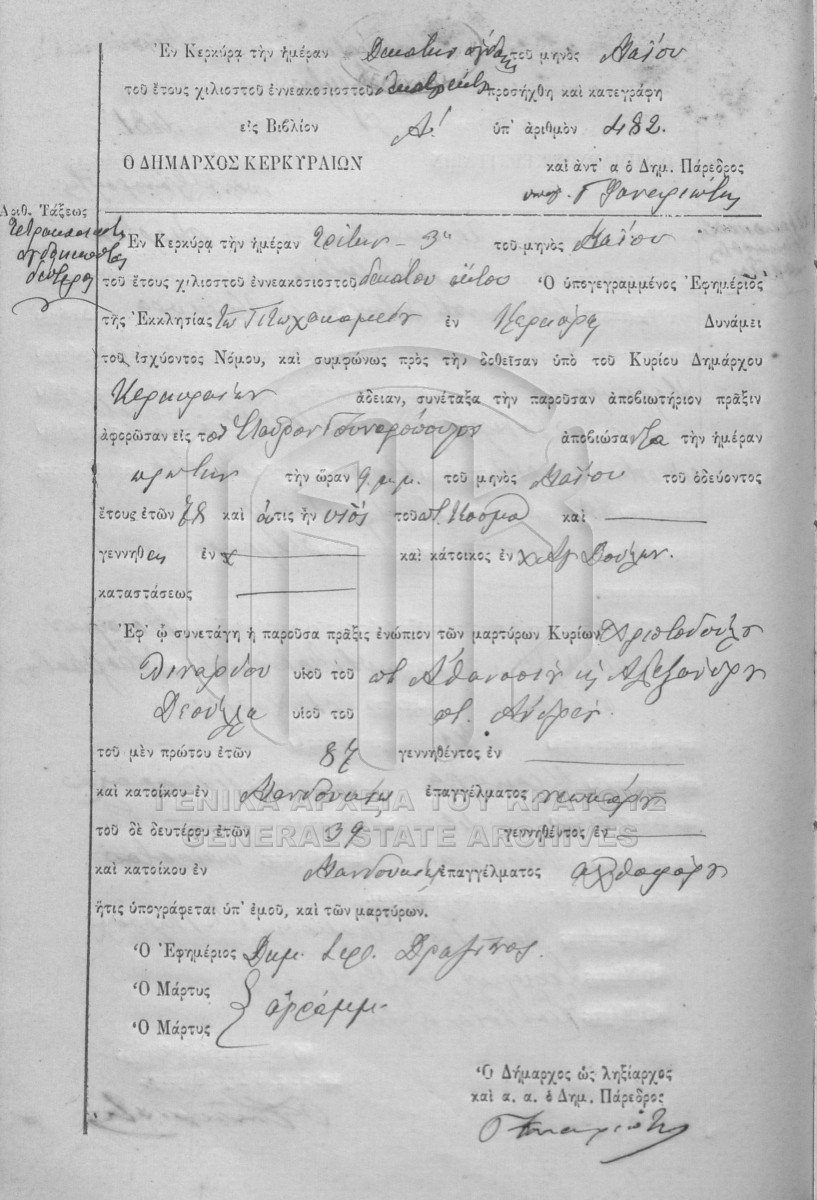 Ἐν Κερκύρᾳ τὴν ἡμέραν Δεκάτην ὀγδόην τοῦ μηνὸς Μαΐου
τοῦ ἔτους χιλιοστοῦ ἐννεακοσιοστοῦ προσήχθη καὶ κατεγράφη
εἰς Βιβλίον Α! ὑπ' ἀριθμὸν 482.
Ὁ ΔΗΜΑΡΧΟΣ ΚΕΡΚΥΡΑΙΩΝ καὶ ἀντ' α ὁ Δημ. Πάρεδρος
Γ Φαναριώτης
Ἀριθ. Τάξεως
δεύτερος
Ἐν Κερκύρᾳ τὴν ἡμέραν τρίτην - 3ην τοῦ μηνὸς Μαΐου
τοῦ ἔτους χιλιοστοῦ ἐννεακοσιοστοῦ δεκάτου ἕκτου Ὁ ὑπογεγραμμένος Ἐφημέριος
τῆς Ἐκκλησίας τοῦ Πτωχοκομείου ἐν Κερκύρᾳ Δυνάμει
τοῦ ἰσχύοντος Νόμου, καὶ συμφώνως πρὸς τὴν δοθεῖσαν ὑπὸ τοῦ Κυρίου Δημάρχου
Κερκυραίων ἄδειαν, συνέταξα τὴν παροῦσαν ἀποβιωτήριον πρᾶξιν
ἀφορῶσαν εἰς τὸν Σταῦρον ἀποβιώσαντα τὴν ἡμέραν
πρώτην τὴν ὥραν 9 μ.μ. τοῦ μηνὸς Μαΐου τοῦ ὁδεύοντος
ἔτους ἐτῶν καὶ ὅστις ἦν υἱὸς τοῦ ποτ. Κοσμᾶ καὶ
γεννηθεὶς ἐν καὶ κάτοικος ἐν Αγ Δούλων.
καταστάσεως
Ἐφ' ᾧ συνετάγη ἡ παροῦσα πρᾶξις ἐνώπιον τῶν μαρτύρων Κυρίων Χριστοδούλου
υἱοῦ τοῦ ποτ Ἀθανασίου κ Ἀλεξάνδρου
υἱοῦ τοῦ ποτ. Ἀνδρέου
τοῦ μὲν πρώτου ἐτῶν 87 γεννηθέντος ἐν
καὶ κατοίκου ἐν Μανδούκι ἐπαγγέλματος
τοῦ δὲ δευτέρου ἐτῶν 39 γεννηθέντος ἐν
καὶ κατοίκου ἐν Μανδούκι ἐπαγγέλματος
ἥτις ὑπογράφεται ὑπ' ἐμοῦ, καὶ τῶν μαρτύρων.
Ὁ Ἐφημέριος Δημ. Ιερ. Δραζίνος.
Ὁ Μάρτυς
ἀγράμμ.
Ὁ Μάρτυς
Ὁ Δήμαρχος ὡς ληξίαρχος
καὶ α. α. ὁ Δημ. Πάρεδρος
Γ Φαναριώτης
ΓΕΝΙΚΑ ΑΡΧΕΙΑ ΤΟΥ ΚΡΑΤΟΥΣ
GENERAL STATE ARCHIVES